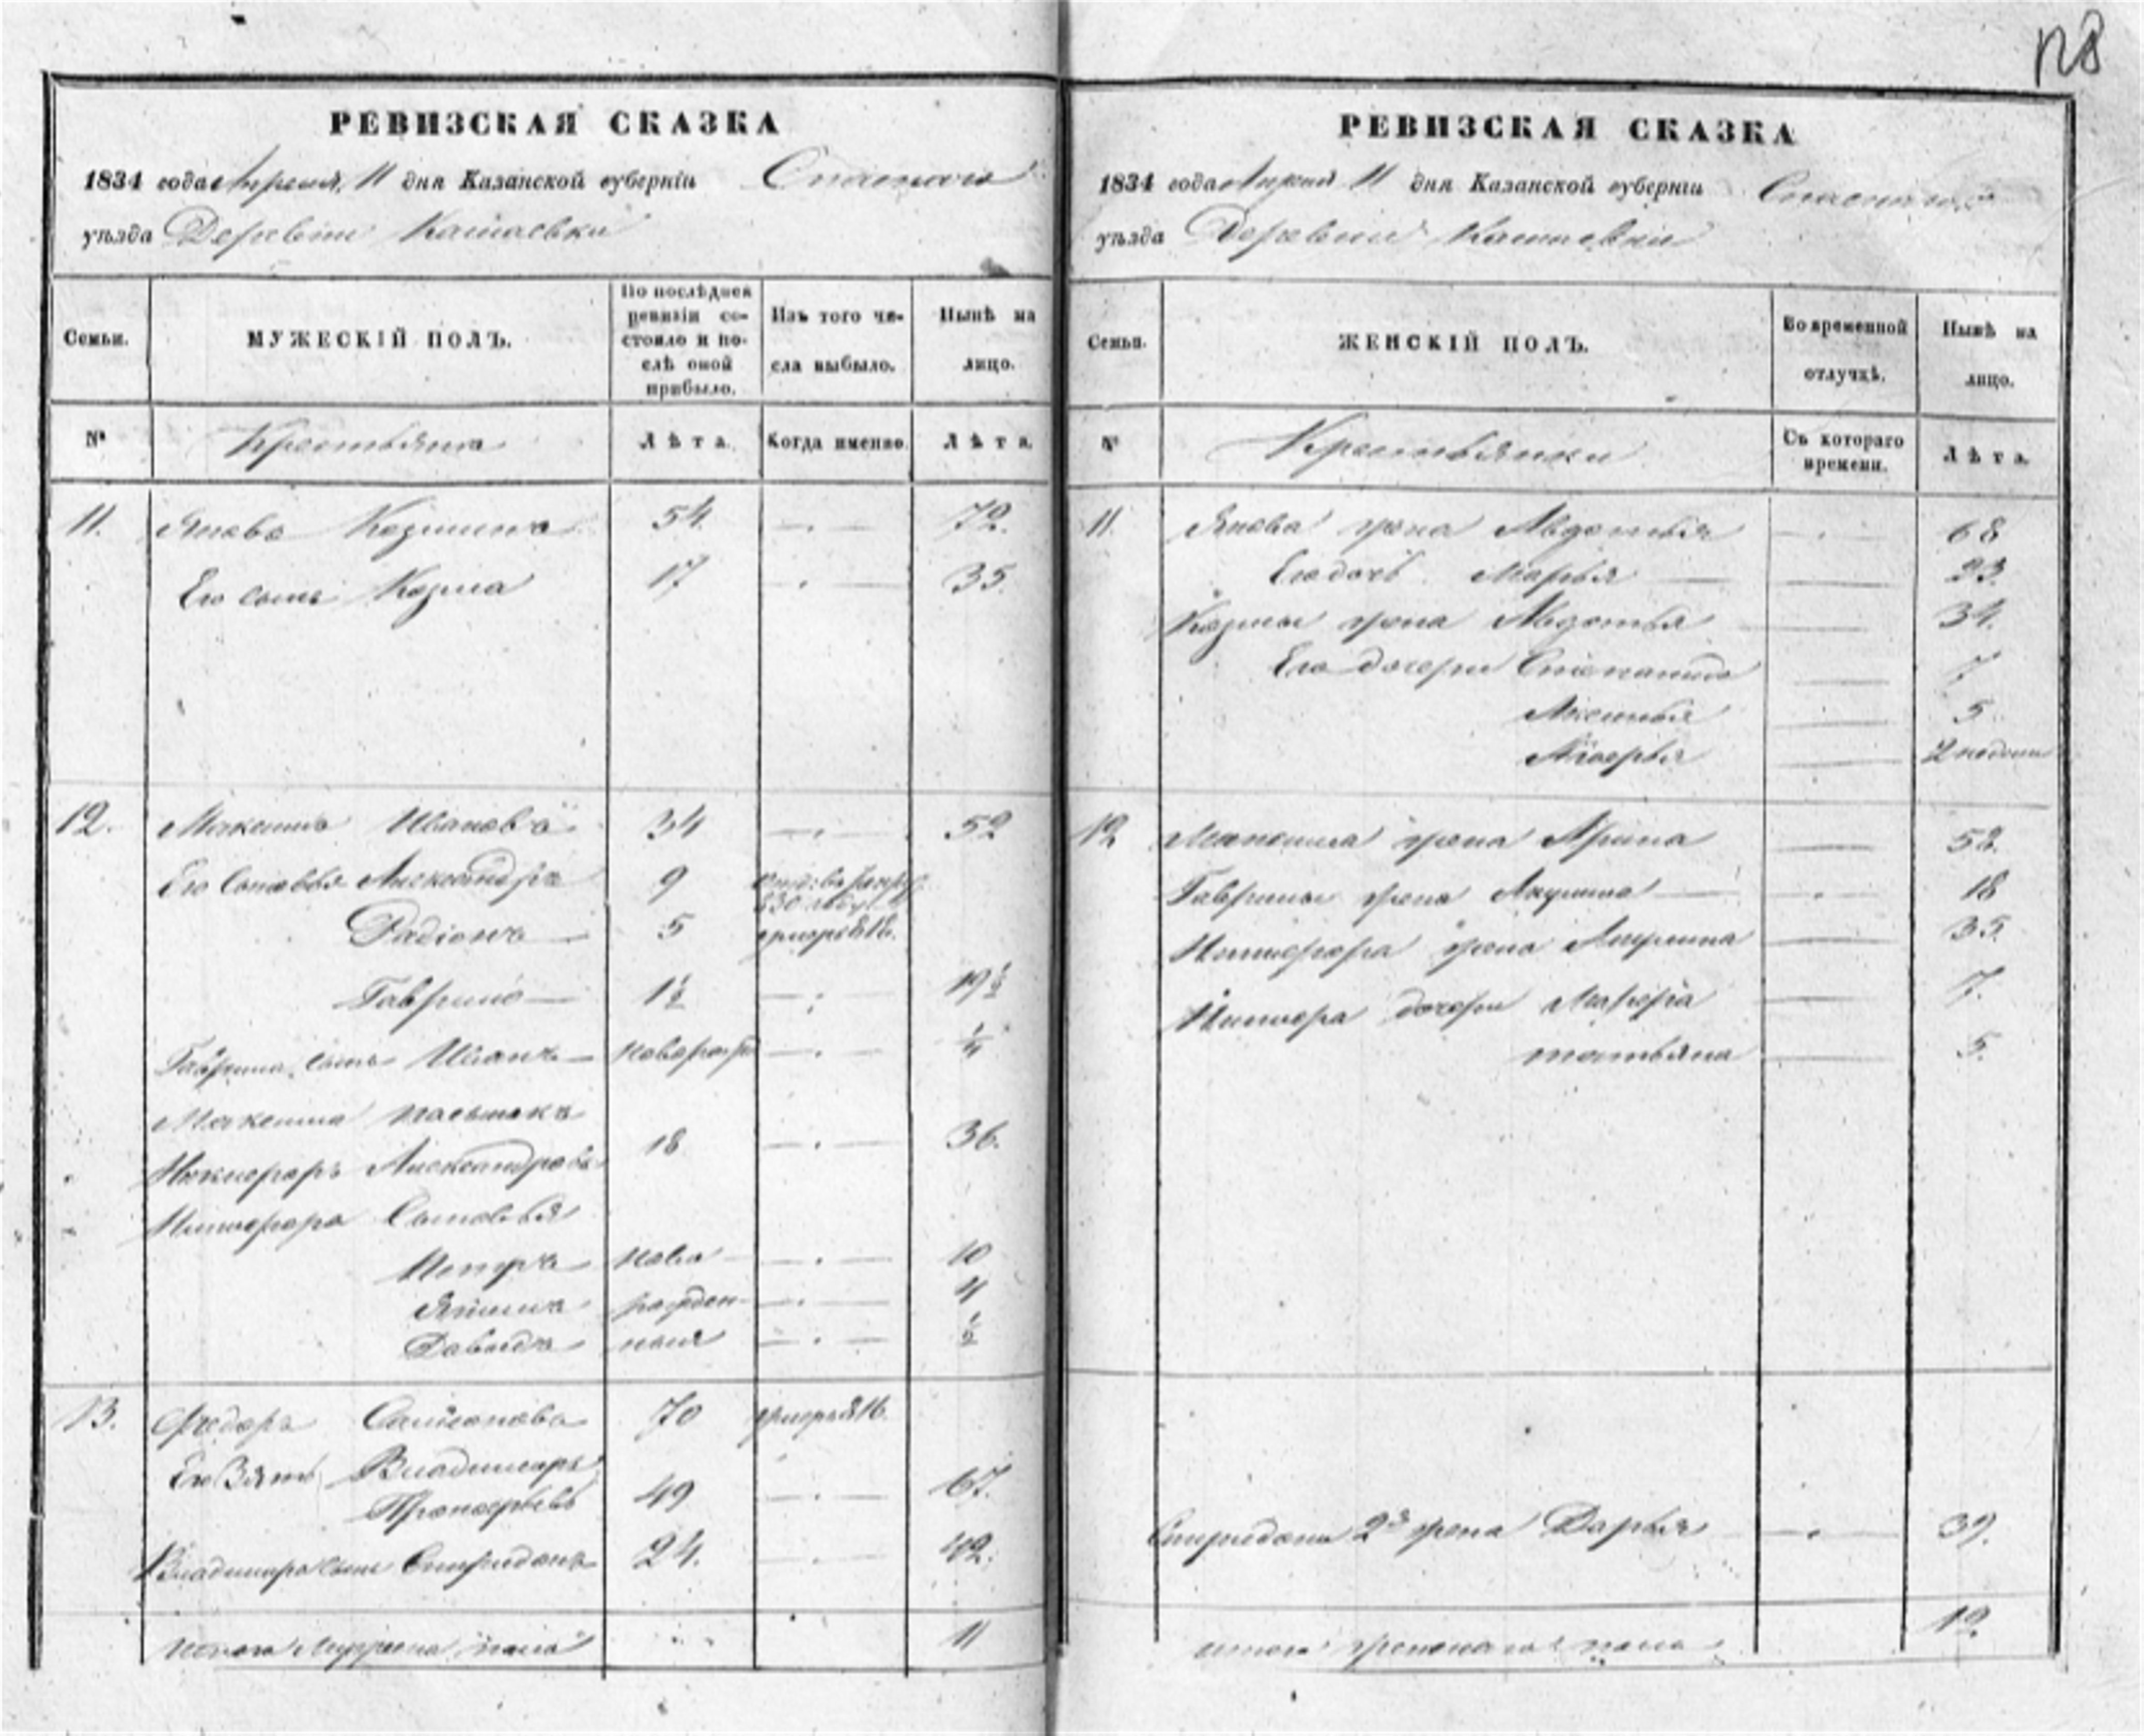 РЕВИЗСКАЯ СКАЗКА
1834 года Апреля, 11 дня Казанской губерніи Спаскаго
уѣзда Деревни Катаевки
Семьи.
МУЖЕСКІЙ ПОЛЪ.
По послѣдней ревизіи со-
стояло и по-
слѣ оной
прибыло.
Изъ того чи-
сла выбыло.
Нынѣ на
лицо.
№
Крестьяна
Лѣта.
Когда именно.
Лѣта.
11. Яковъ Козминъ 54. — . — 72.
Его сынъ Козма 17 — . — 35.
12. Максимъ Ивановъ 34 — . — 52
Его Сыновья Александръ 9
830
Радіонъ — 5
Гаврило — 1½ — . — 19½
Гаврила сынъ Иванъ — — . — ¼
Максима
Никифоръ Александровъ 18 — . — 36.
Никифора Сыновья
Петръ ново — . — 10
рожден — . — 4
Давыдъ ныя — . — ½
13. Федоръ 70
Его Зять Владимиръ
Прокофьевъ 49 — . — 67.
Владимира сынъ Спиридонъ 24. — . — 42.
итого Мужеска пола 11
128
РЕВИЗСКАЯ СКАЗКА
1834 года Апреля 11 дня Казанской губерніи Спаскаго
уѣзда Деревни Катаевки
Семьи.
ЖЕНСКІЙ ПОЛЪ.
Во временной
отлучкѣ.
Нынѣ на
лицо.
№
Крестьянки
Съ котораго
времени.
Лѣта.
11. Якова жена Авдотья — . — 68
Его дочь Марья — 23.
Козмы жена Авдотья — 34.
Его дочери Степанида — 7
Аксинья — 5
— 2 недели
12 Максима жена Арина — 52.
Гаврилы жена Акулина — . — 18
Никифора жена — 35.
Никифора дочери — 7.
татьяна — 5.
Спиридона 2я жена Дарья — . — 39.
итого женскаго пола 12.